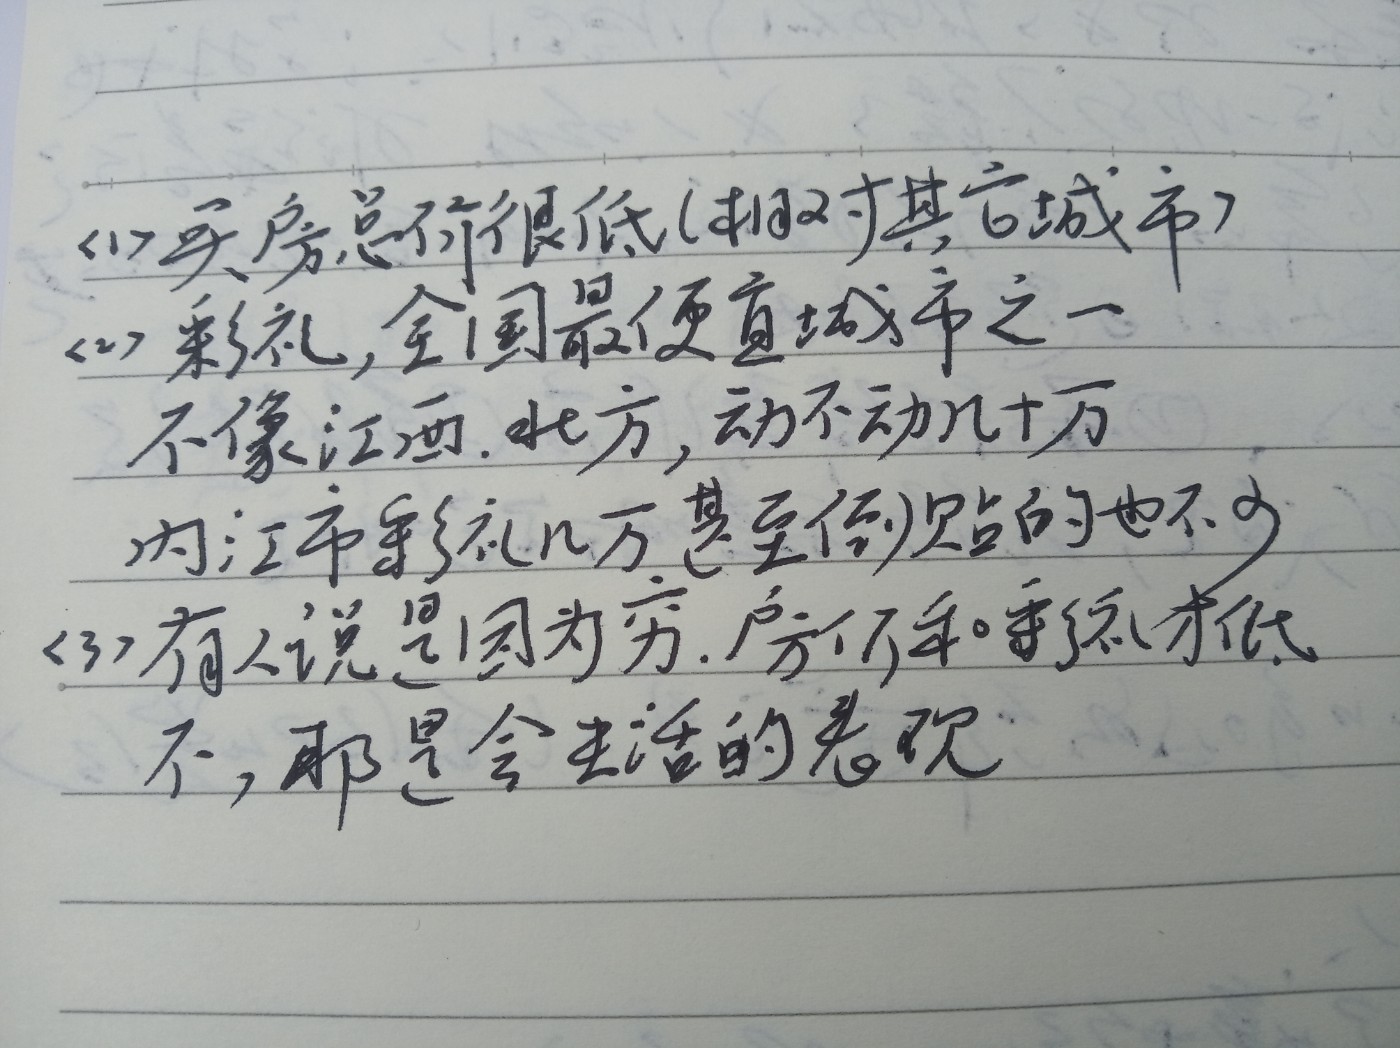 <1>买房总价很低(相对其它城市)
<2>彩礼,全国最便宜城市之一
不像江西.北方,动不动几十万
内江市彩礼几万甚至倒贴的也不少
<3>有人说是因为穷.房价和彩礼才低
不,那是会生活的表现